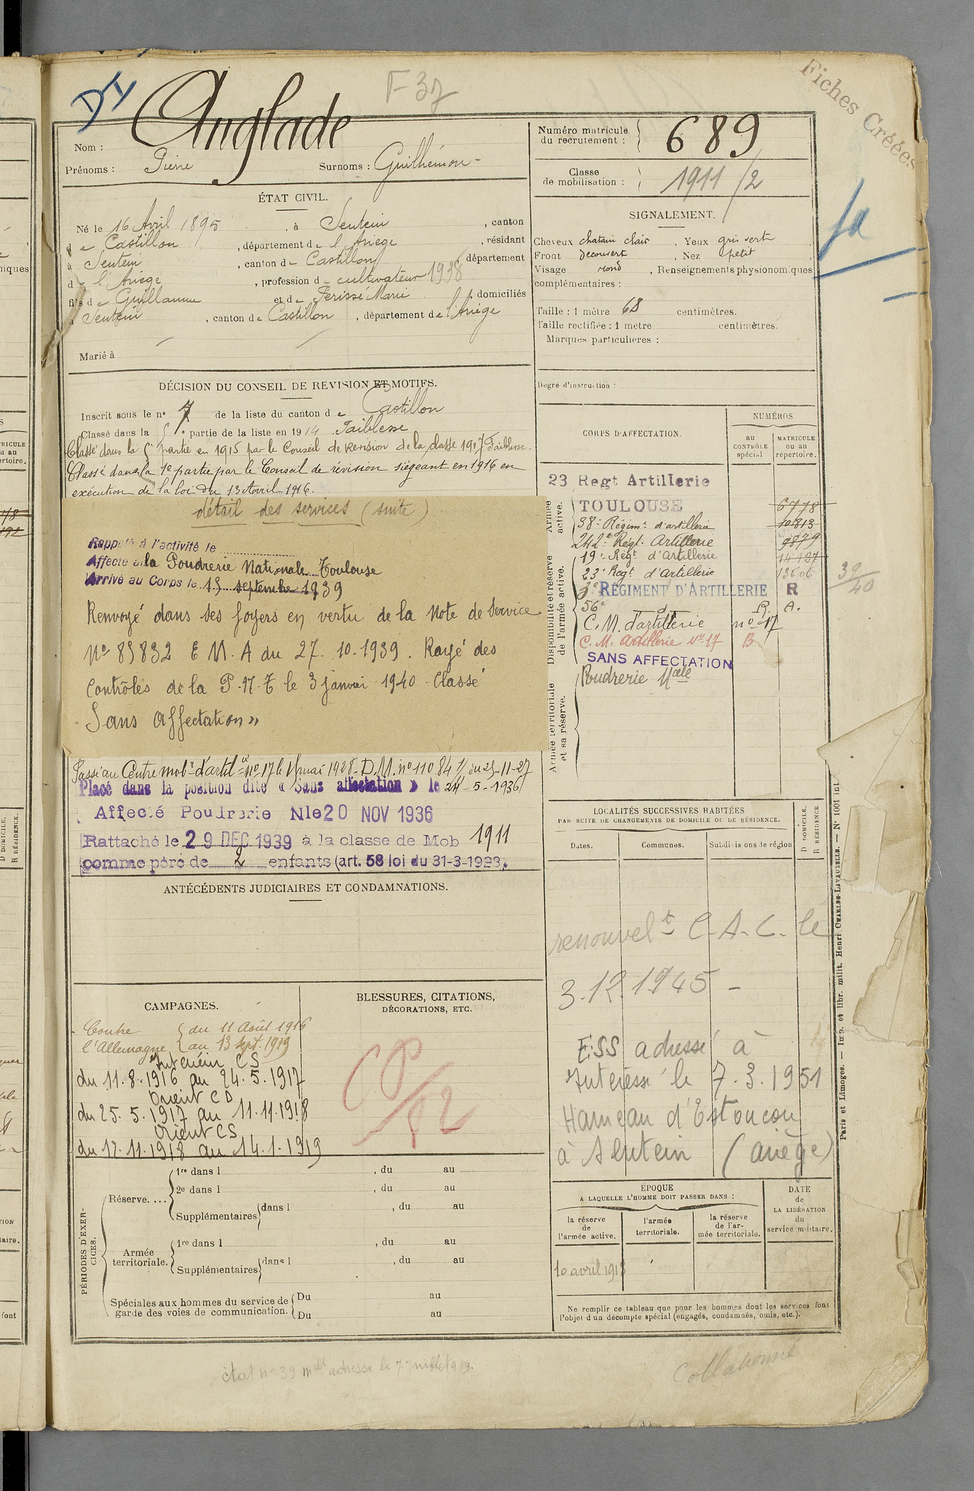 DY
F 37
Fiches Créées
Nom : Anglade
Prénoms : Pierre Surnoms : Guilhémon
Numéro matricule du recrutement : 689
Classe de mobilisation : 1911/2
ÉTAT CIVIL.
Né le 16 Avril 1895, à Sentein, canton
de Castillon, département de l'Ariège, résidant
à Sentein, canton de Castillon, département
de l'Ariège, profession de cultivateur 1938
fils de Guillaume et de Ferisse Marie, domiciliés
à Sentein, canton de Castillon, département de l'Ariège
Marié à
SIGNALEMENT.
Cheveux chatain clair. Yeux gris vert
Front découvert, Nez petit
Visage rond, Renseignements physionomiques
complémentaires :
Taille : 1 mètre 68 centimètres.
Taille rectifiée : 1 mètre centimètres.
Marques particulières :
Degré d'instruction :
DÉCISION DU CONSEIL DE REVISION ET MOTIFS.
Inscrit sous le n° 7 de la liste du canton de Castillon
Classé dans la partie de la liste en 1914 Faiblesse
Classé dans la 5e partie en 1915 par le Conseil de Revision de la classe 1917 Faiblesse.
Classé dans la 1e partie par le Conseil de révision siégeant en 1916 en
exécution de la loi du 13 Avril 1916.
détail des services (suite)
Rappelé à l'activité le
Affecté à la Poudrerie Nationale Toulouse
Arrivé au Corps le 13 septembre 1939
Renvoyé dans ses foyers en vertu de la Note de Service
N° 83832 E M. A du 27. 10. 1939. Rayé des
Contrôles de la P. N. T le 3 janvier 1940. Classé
"Sans affectation"
Passé au Centre mob. d'artil. n° 17 le 1er mai 1928. D.M. n° 11084 1/ du 23-11-27
Placé dans la position dite « Sans affectation » le 24-5-1936
Affecté Poudrerie Nle 20 NOV 1936
Rattaché le 29 DEC 1939 à la classe de Mob 1911
comme père de 2 enfants (art. 58 loi du 31-3-1928.
CORPS D'AFFECTATION.
NUMÉROS
AU CONTRÔLE spécial
MATRICULE ou au répertoire.
Armée active.
Disponibilité et réserve de l'armée active.
Armée territoriale et sa réserve.
23 Regt Artillerie
TOULOUSE 6778
38e Régimt d'artillerie 10313
242e Régt. Artillerie
19e Régt d'Artillerie
23e Regt d'Artillerie
3e RÉGIMENT D'ARTILLERIE R
56e d° R. A.
C. M. d'artillerie n° 17
C. M. Artillerie N° 17 B
SANS AFFECTATION
Poudrerie Nale
39/40
ANTÉCÉDENTS JUDICIAIRES ET CONDAMNATIONS.
LOCALITÉS SUCCESSIVES HABITÉES
PAR SUITE DE CHANGEMENTS DE DOMICILE OU DE RÉSIDENCE.
Dates. Communes. Subdivisions de région
D DOMICILE. R RÉSIDENCE
renouvelt C. A. C. le
3.12.1945 -
ESS adressé à
Intéressé le 7.3.1951
Hameau d'Estoucou
à Sentein (Ariège)
CAMPAGNES.
Contre l'Allemagne { du 11 Août 1916 au 13 Sept. 1919
Intérieur CS
du 11.8.1916 au 24.5.1917
Orient CD
du 25.5.1917 au 11.11.1918
Orient CS
du 12.11.1918 au 14.1.1919
BLESSURES, CITATIONS,
DÉCORATIONS, ETC.
PÉRIODES D'EXERCICES.
Réserve....
1re dans l , du au
2e dans l , du au
Supplémentaires dans l , du au
Armée territoriale.
1re dans l , du au
Supplémentaires dans l , du au
Spéciales aux hommes du service de garde des voies de communication.
Du au
Du au
ÉPOQUE
A LAQUELLE L'HOMME DOIT PASSER DANS :
la réserve de l'armée active.
l'armée territoriale.
la réserve de l'armée territoriale.
DATE de LA LIBÉRATION du service militaire.
10 avril 1918
Ne remplir ce tableau que pour les hommes dont les services font
l'objet d'un décompte spécial (engagés, condamnés, omis, etc.).
Paris et Limoges. — Imp. et libr. milit. Henri CHARLES-LAVAUZELLE.
Collationné